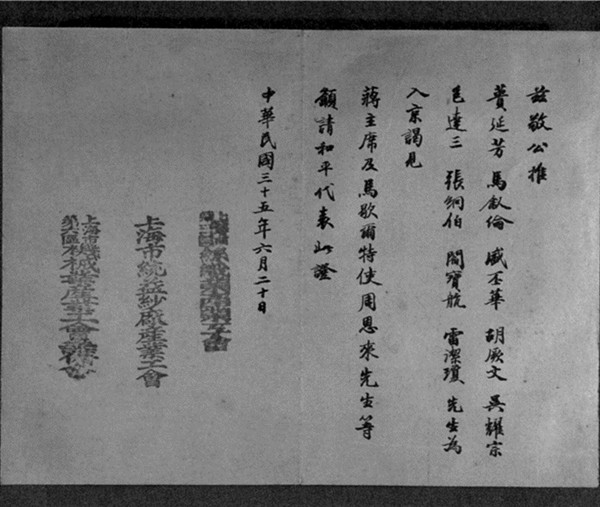 茲敬公推
蕢延芳 馬叙倫 盛丕華 胡厥文 吳耀宗
包達三 張絅伯 閻寶航 雷潔瓊 先生為
入京謁見
蔣主席及馬歇爾特使周恩來先生等
籲請和平代表此證
中華民國三十五年六月二十日
上海市統益紗廠產業工會
上海市
機械業產業工會